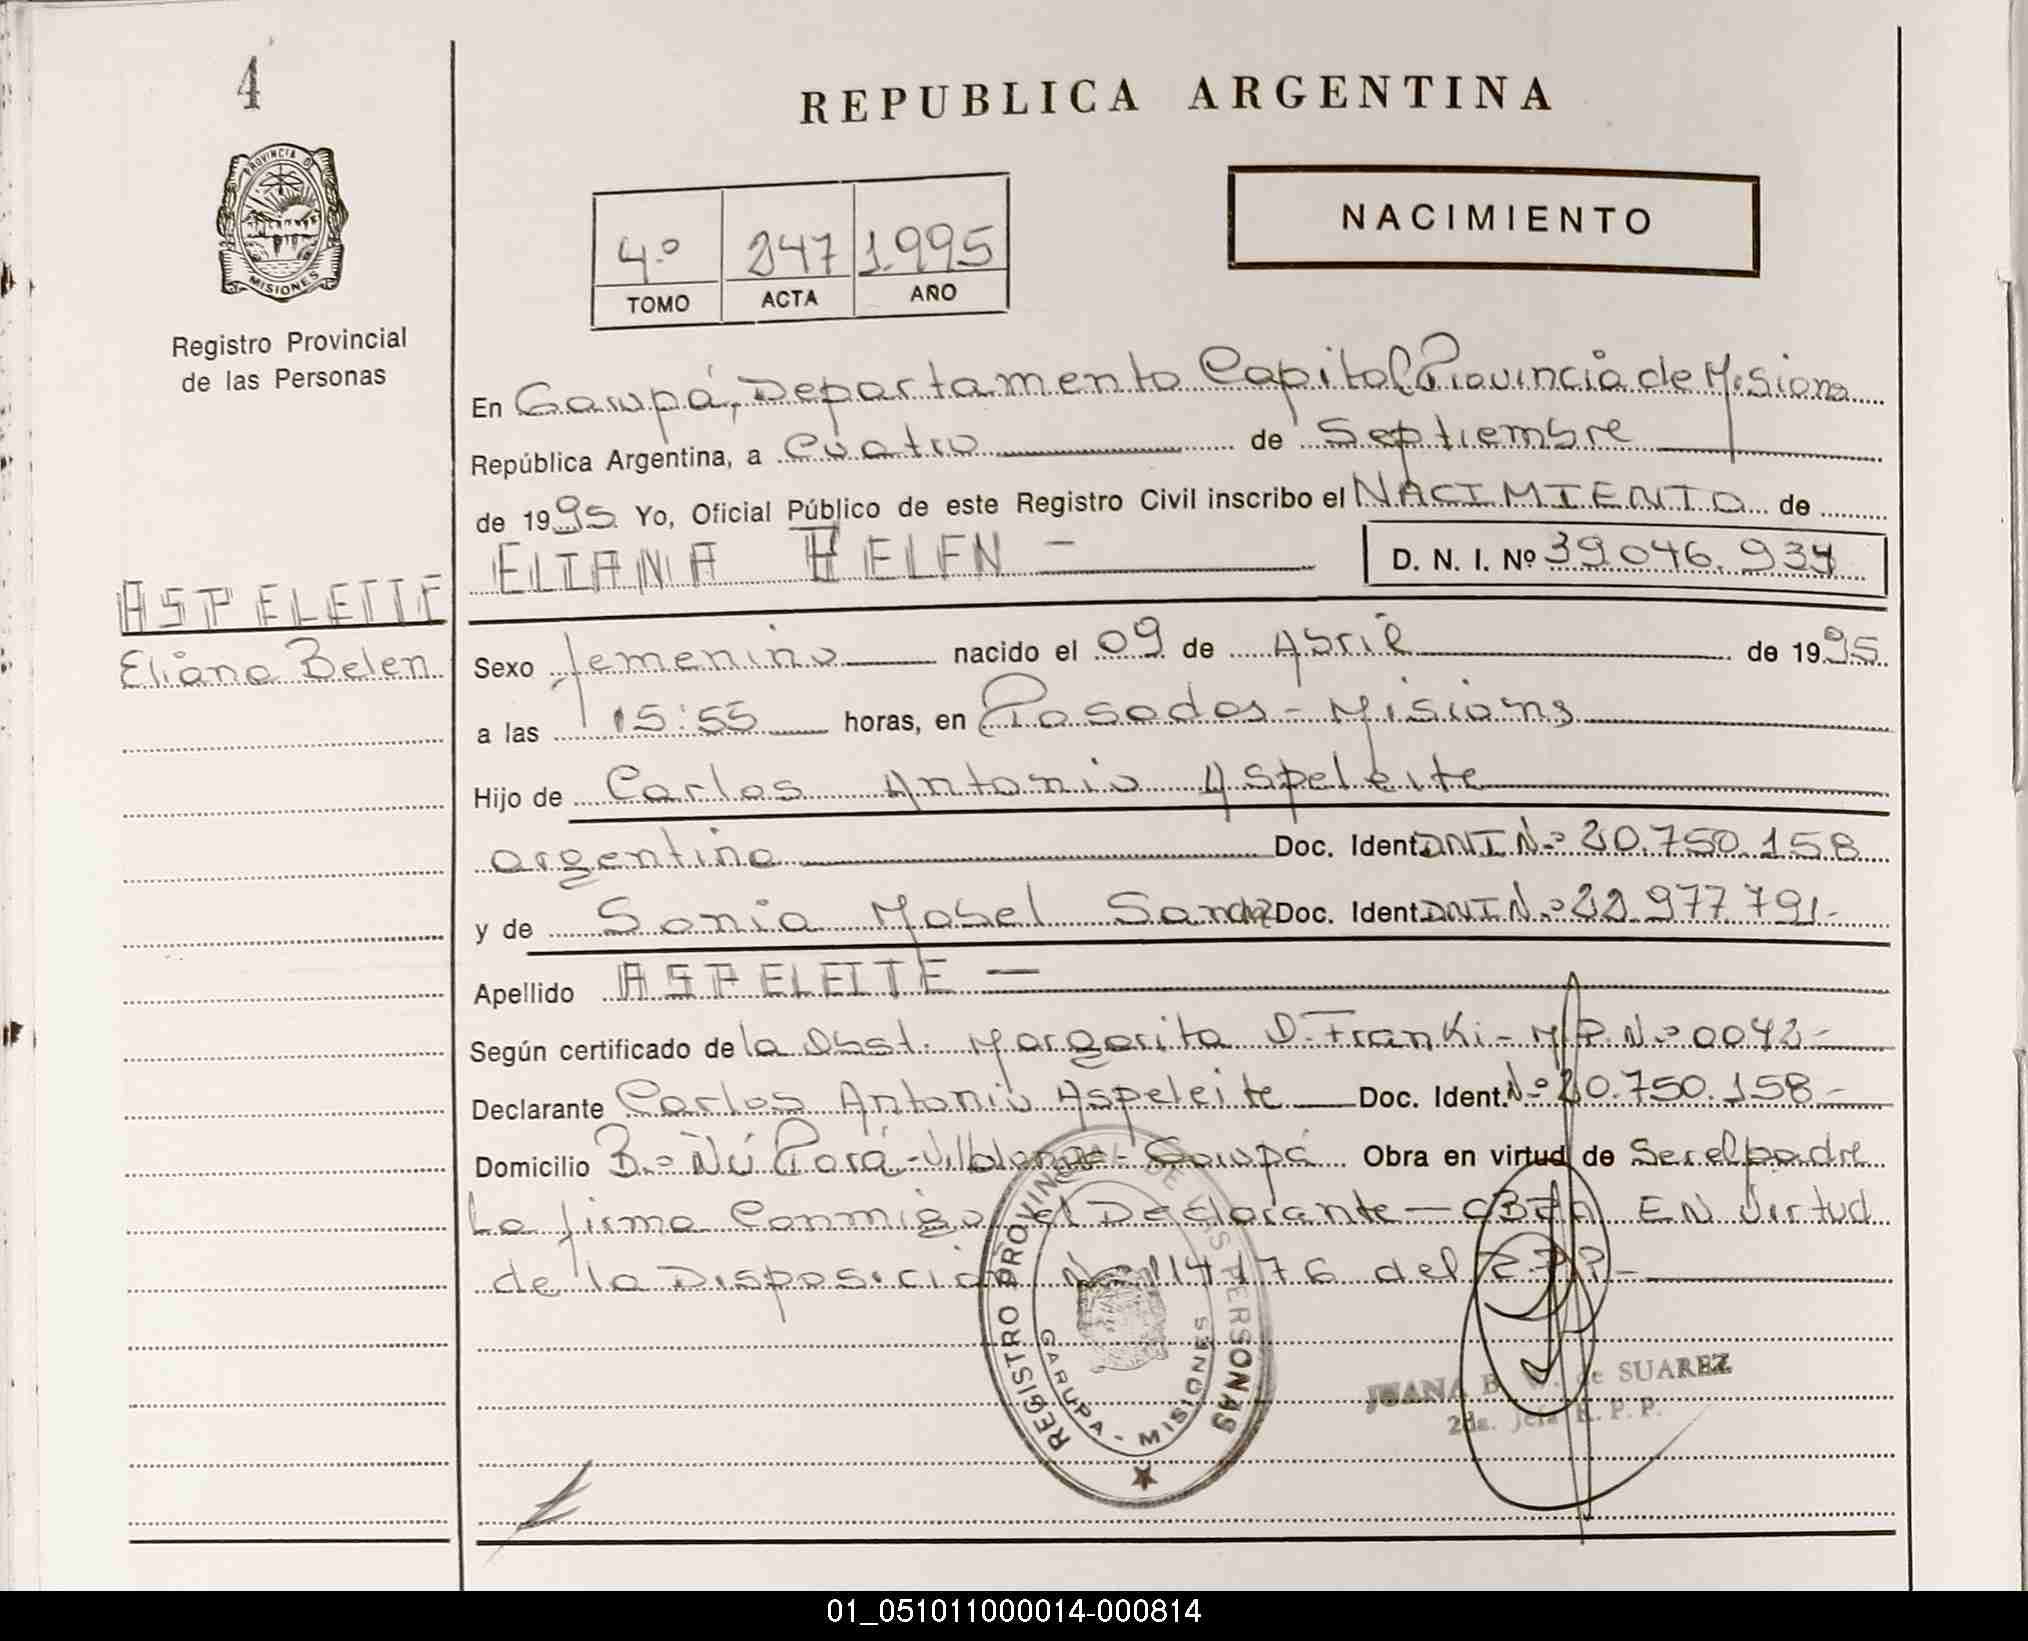 4
REPUBLICA ARGENTINA
PROVINCIA DE
MISIONES
Registro Provincial
de las Personas
4.º 247 1.995
TOMO ACTA AÑO
NACIMIENTO
En Garupá, Departamento Capital Provincia de Misiones
República Argentina, a Cuatro de Septiembre
de 1995 Yo, Oficial Público de este Registro Civil inscribo el NACIMIENTO de
ELIANA BELEN - D. N. I. Nº 39.046.934
ASPELEITE
Eliana Belen
Sexo femenino nacido el 09 de Abril de 1995
a las 15:55 horas, en Posadas - Misiones
Hijo de Carlos Antonio Aspeleite
argentino Doc. Ident. DNI N.º 20.750.158
y de Sonia Mabel Doc. Ident. DNI N.º 22.977.791.-
Apellido ASPELEITE -
Según certificado de la Obst. Margarita D. Franki - M.P. N.º 0042 -
Declarante Carlos Antonio Aspeleite Doc. Ident. Nº 20.750.158 -
Domicilio B.º Ñú Porá - Villalonga - Garupá Obra en virtud de Ser el padre
La firma Conmigo el Declarante - EN Virtud
de la Disposición N.º 114/76 del R.P.P. -
REGISTRO PROVINCIAL DE LAS PERSONAS
GARUPA - MISIONES
JUANA B. W. de SUAREZ
2da. Jefa R. P. P.
01_051011000014-000814